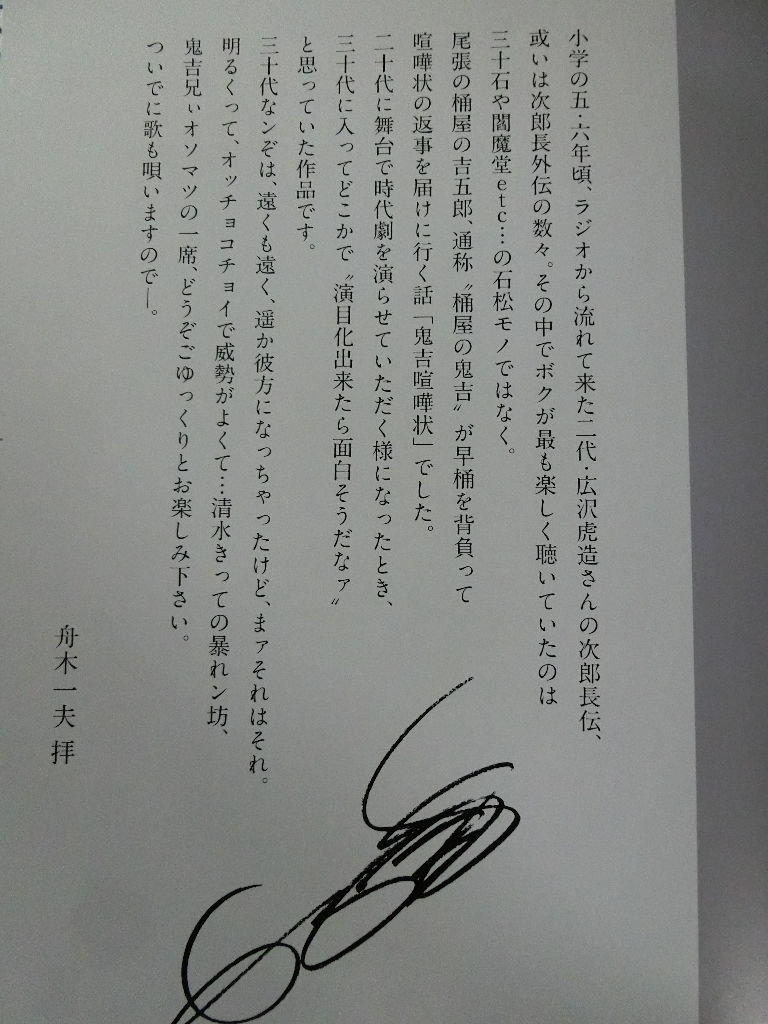 小学の五・六年頃、ラジオから流れて来た二代・広沢虎造さんの次郎長伝、
或いは次郎長外伝の数々。その中でボクが最も楽しく聴いていたのは
三十石や閻魔堂etc…の石松モノではなく。
尾張の桶屋の吉五郎、通称〝桶屋の鬼吉〟が早桶を背負って
喧嘩状の返事を届けに行く話「鬼吉喧嘩状」でした。
二十代に舞台で時代劇を演らせていただく様になったとき、
三十代に入ってどこかで〝演目化出来たら面白そうだなァ〟
と思っていた作品です。
三十代なンぞは、遠くも遠く、遥か彼方になっちゃったけど、まァそれはそれ。
明るくって、オッチョコチョイで威勢がよくて…清水きっての暴れン坊、
鬼吉兄ぃオソマツの一席、どうぞごゆっくりとお楽しみ下さい。
ついでに歌も唄いますので―。
舟木一夫 拝